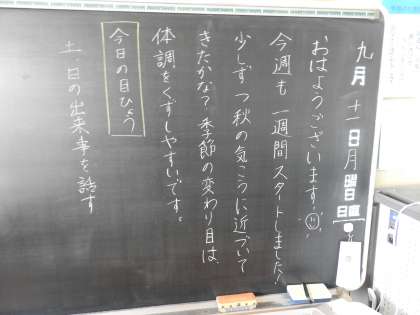 九月十一日月曜日
日直
おはようございます。
今週も一週間スタートしました!
少しずつ秋の気こうに近づいて
きたかな?季節の変わり目は、
体調をくずしやすいです。
今日の目ひょう
土、日の出来事を話す